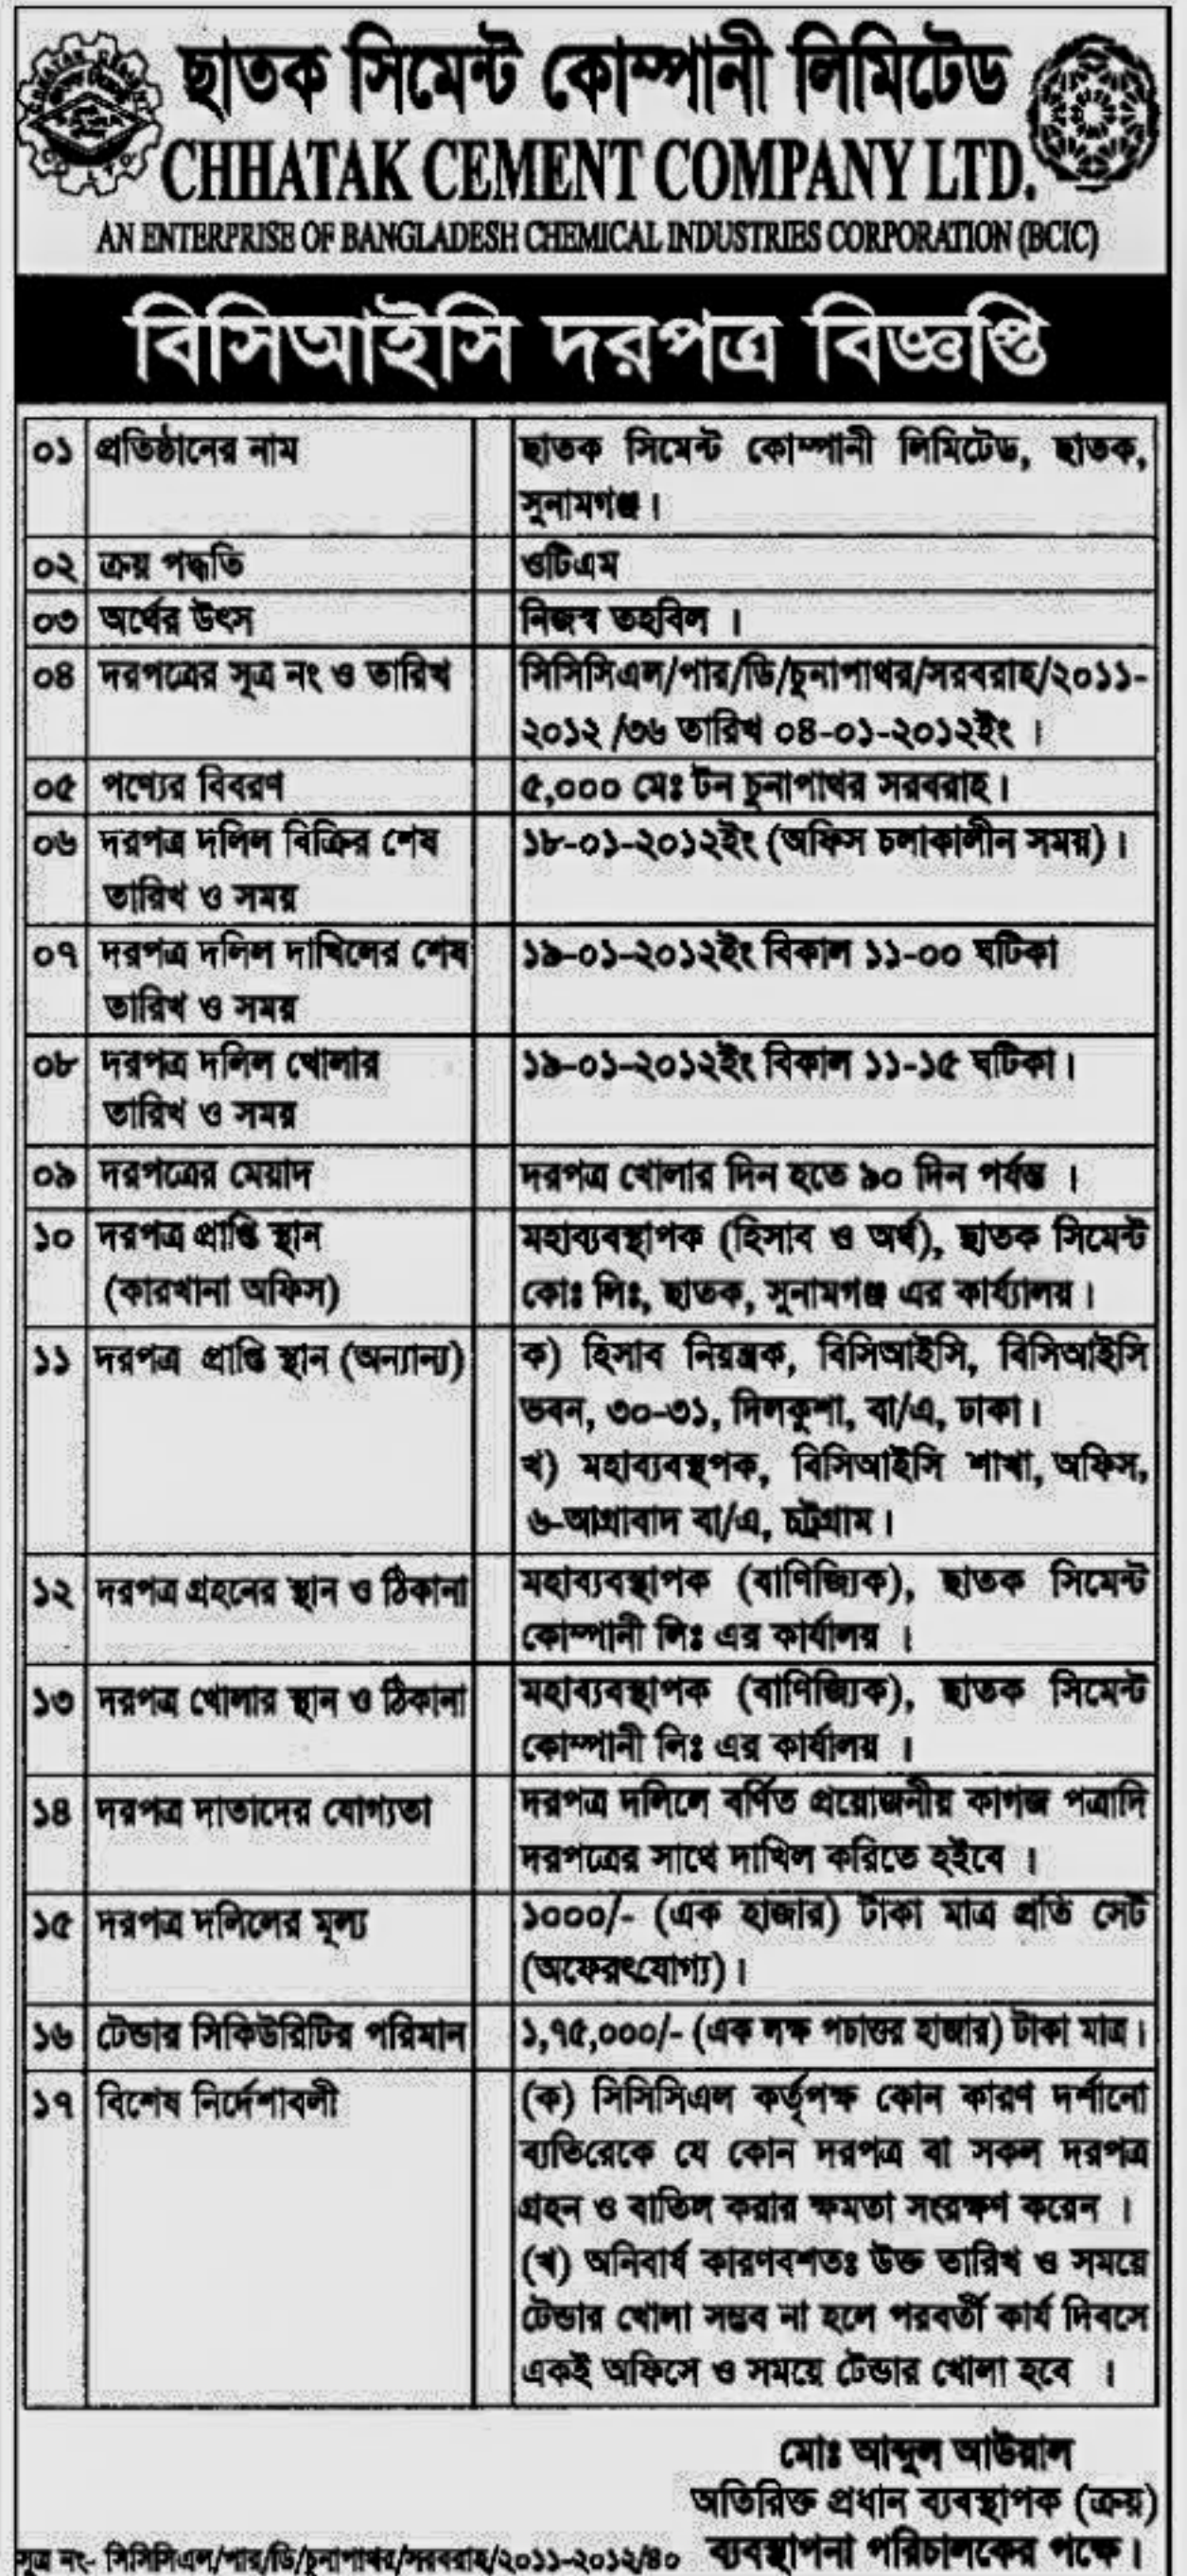 ছাতক সিমেন্ট কোম্পানী লিমিটেড
CHHATAK CEMENT COMPANY LTD.
AN ENTERPRISE OF BANGLADESH CHEMICAL INDUSTRIES CORPORATION (BCIC)
বিসিআইসি দরপত্র বিজ্ঞপ্তি
০১ প্রতিষ্ঠানের নাম ছাতক সিমেন্ট কোম্পানী লিমিটেড, ছাতক,
সুনামগঞ্জ।
০২ ক্রয় পদ্ধতি ওটিএম
০৩ অর্থের উৎস নিজস্ব তহবিল ।
০৪ দরপত্রের সূত্র নং ও তারিখ সিসিসিএল/পার/ডি/চুনাপাথর/সরবরাহ/২০১১-
২০১২ /৩৬ তারিখ ০৪-০১-২০১২ইং ।
০৫ পণ্যের বিবরণ ৫,০০০ মেঃ টন চুনাপাথর সরবরাহ।
০৬ দরপত্র দলিল বিক্রির শেষ ১৮-০১-২০১২ইং (অফিস চলাকালীন সময়)।
তারিখ ও সময়
০৭ দরপত্র দলিল দাখিলের শেষ ১৯-০১-২০১২ইং বিকাল ১১-০০ ঘটিকা
তারিখ ও সময়
০৮ দরপত্র দলিল খোলার ১৯-০১-২০১২ইং বিকাল ১১-১৫ ঘটিকা।
তারিখ ও সময়
০৯ দরপত্রের মেয়াদ দরপত্র খোলার দিন হতে ৯০ দিন পর্যন্ত ।
১০ দরপত্র প্রাপ্তি স্থান মহাব্যবস্থাপক (হিসাব ও অর্থ), ছাতক সিমেন্ট
(কারখানা অফিস) কোঃ লিঃ, ছাতক, সুনামগঞ্জ এর কার্য্যালয়।
১১ দরপত্র প্রাপ্তি স্থান (অন্যান্য) ক) হিসাব নিয়ন্ত্রক, বিসিআইসি, বিসিআইসি
ভবন, ৩০-৩১, দিলকুশা, বা/এ, ঢাকা।
খ) মহাব্যবস্থপক, বিসিআইসি শাখা, অফিস,
৬-আগ্রাবাদ বা/এ, চট্রগ্রাম।
১২ দরপত্র গ্রহনের স্থান ও ঠিকানা মহাব্যবস্থাপক (বাণিজ্যিক), ছাতক সিমেন্ট
কোম্পানী লিঃ এর কার্যালয় ।
১৩ দরপত্র খোলার স্থান ও ঠিকানা মহাব্যবস্থাপক (বাণিজ্যিক), ছাতক সিমেন্ট
কোম্পানী লিঃ এর কার্যালয় ।
১৪ দরপত্র দাতাদের যোগ্যতা দরপত্র দলিলে বর্ণিত প্রয়োজনীয় কাগজ পত্রাদি
দরপত্রের সাথে দাখিল করিতে হইবে ।
১৫ দরপত্র দলিলের মূল্য ১০০০/- (এক হাজার) টাকা মাত্র প্রতি সেট
(অফেরৎযোগ্য)।
১৬ টেন্ডার সিকিউরিটির পরিমান ১,৭৫,০০০/- (এক লক্ষ পচাত্তর হাজার) টাকা মাত্র।
১৭ বিশেষ নির্দেশাবলী (ক) সিসিসিএল কর্তৃপক্ষ কোন কারণ দর্শানো
ব্যতিরেকে যে কোন দরপত্র বা সকল দরপত্র
গ্রহন ও বাতিল করার ক্ষমতা সংরক্ষণ করেন ।
(খ) অনিবার্য কারণবশতঃ উক্ত তারিখ ও সময়ে
টেন্ডার খোলা সম্ভব না হলে পরবর্তী কার্য দিবসে
একই অফিসে ও সময়ে টেন্ডার খোলা হবে ।
মোঃ আব্দুল আউয়াল
অতিরিক্ত প্রধান ব্যবস্থাপক (ক্রয়)
ব্যবস্থাপনা পরিচালকের পক্ষে।
সূত্র নং- সিসিসিএল/পার/ডি/চুনাপাথর/সরবরাহ/২০১১-২০১২/৪০